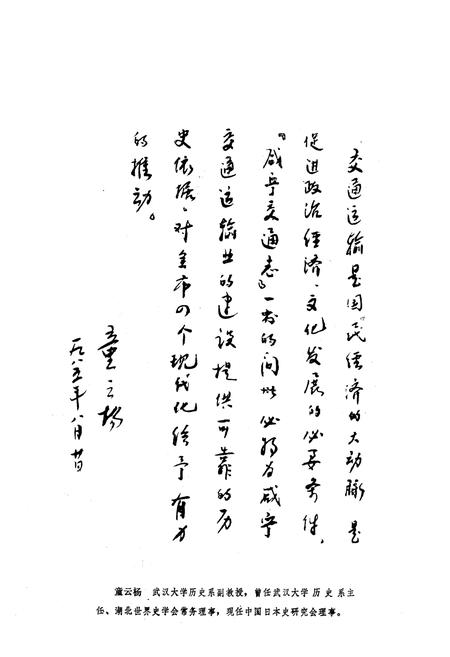 交通运输是国民经济的大动脉是
促进政治经济、文化发展的必要条件。
《咸宁交通志》一书的问世必将为咸宁
交通运输业的建设提供可靠的历
史依据，对全市四个现代化给予有力
的推动。
童云杨
一九八五年八月廿日
童云杨 武汉大学历史系副教授，曾任武汉大学历史系主
任、湖北世界史学会常务理事，现任中国日本史研究会理事。